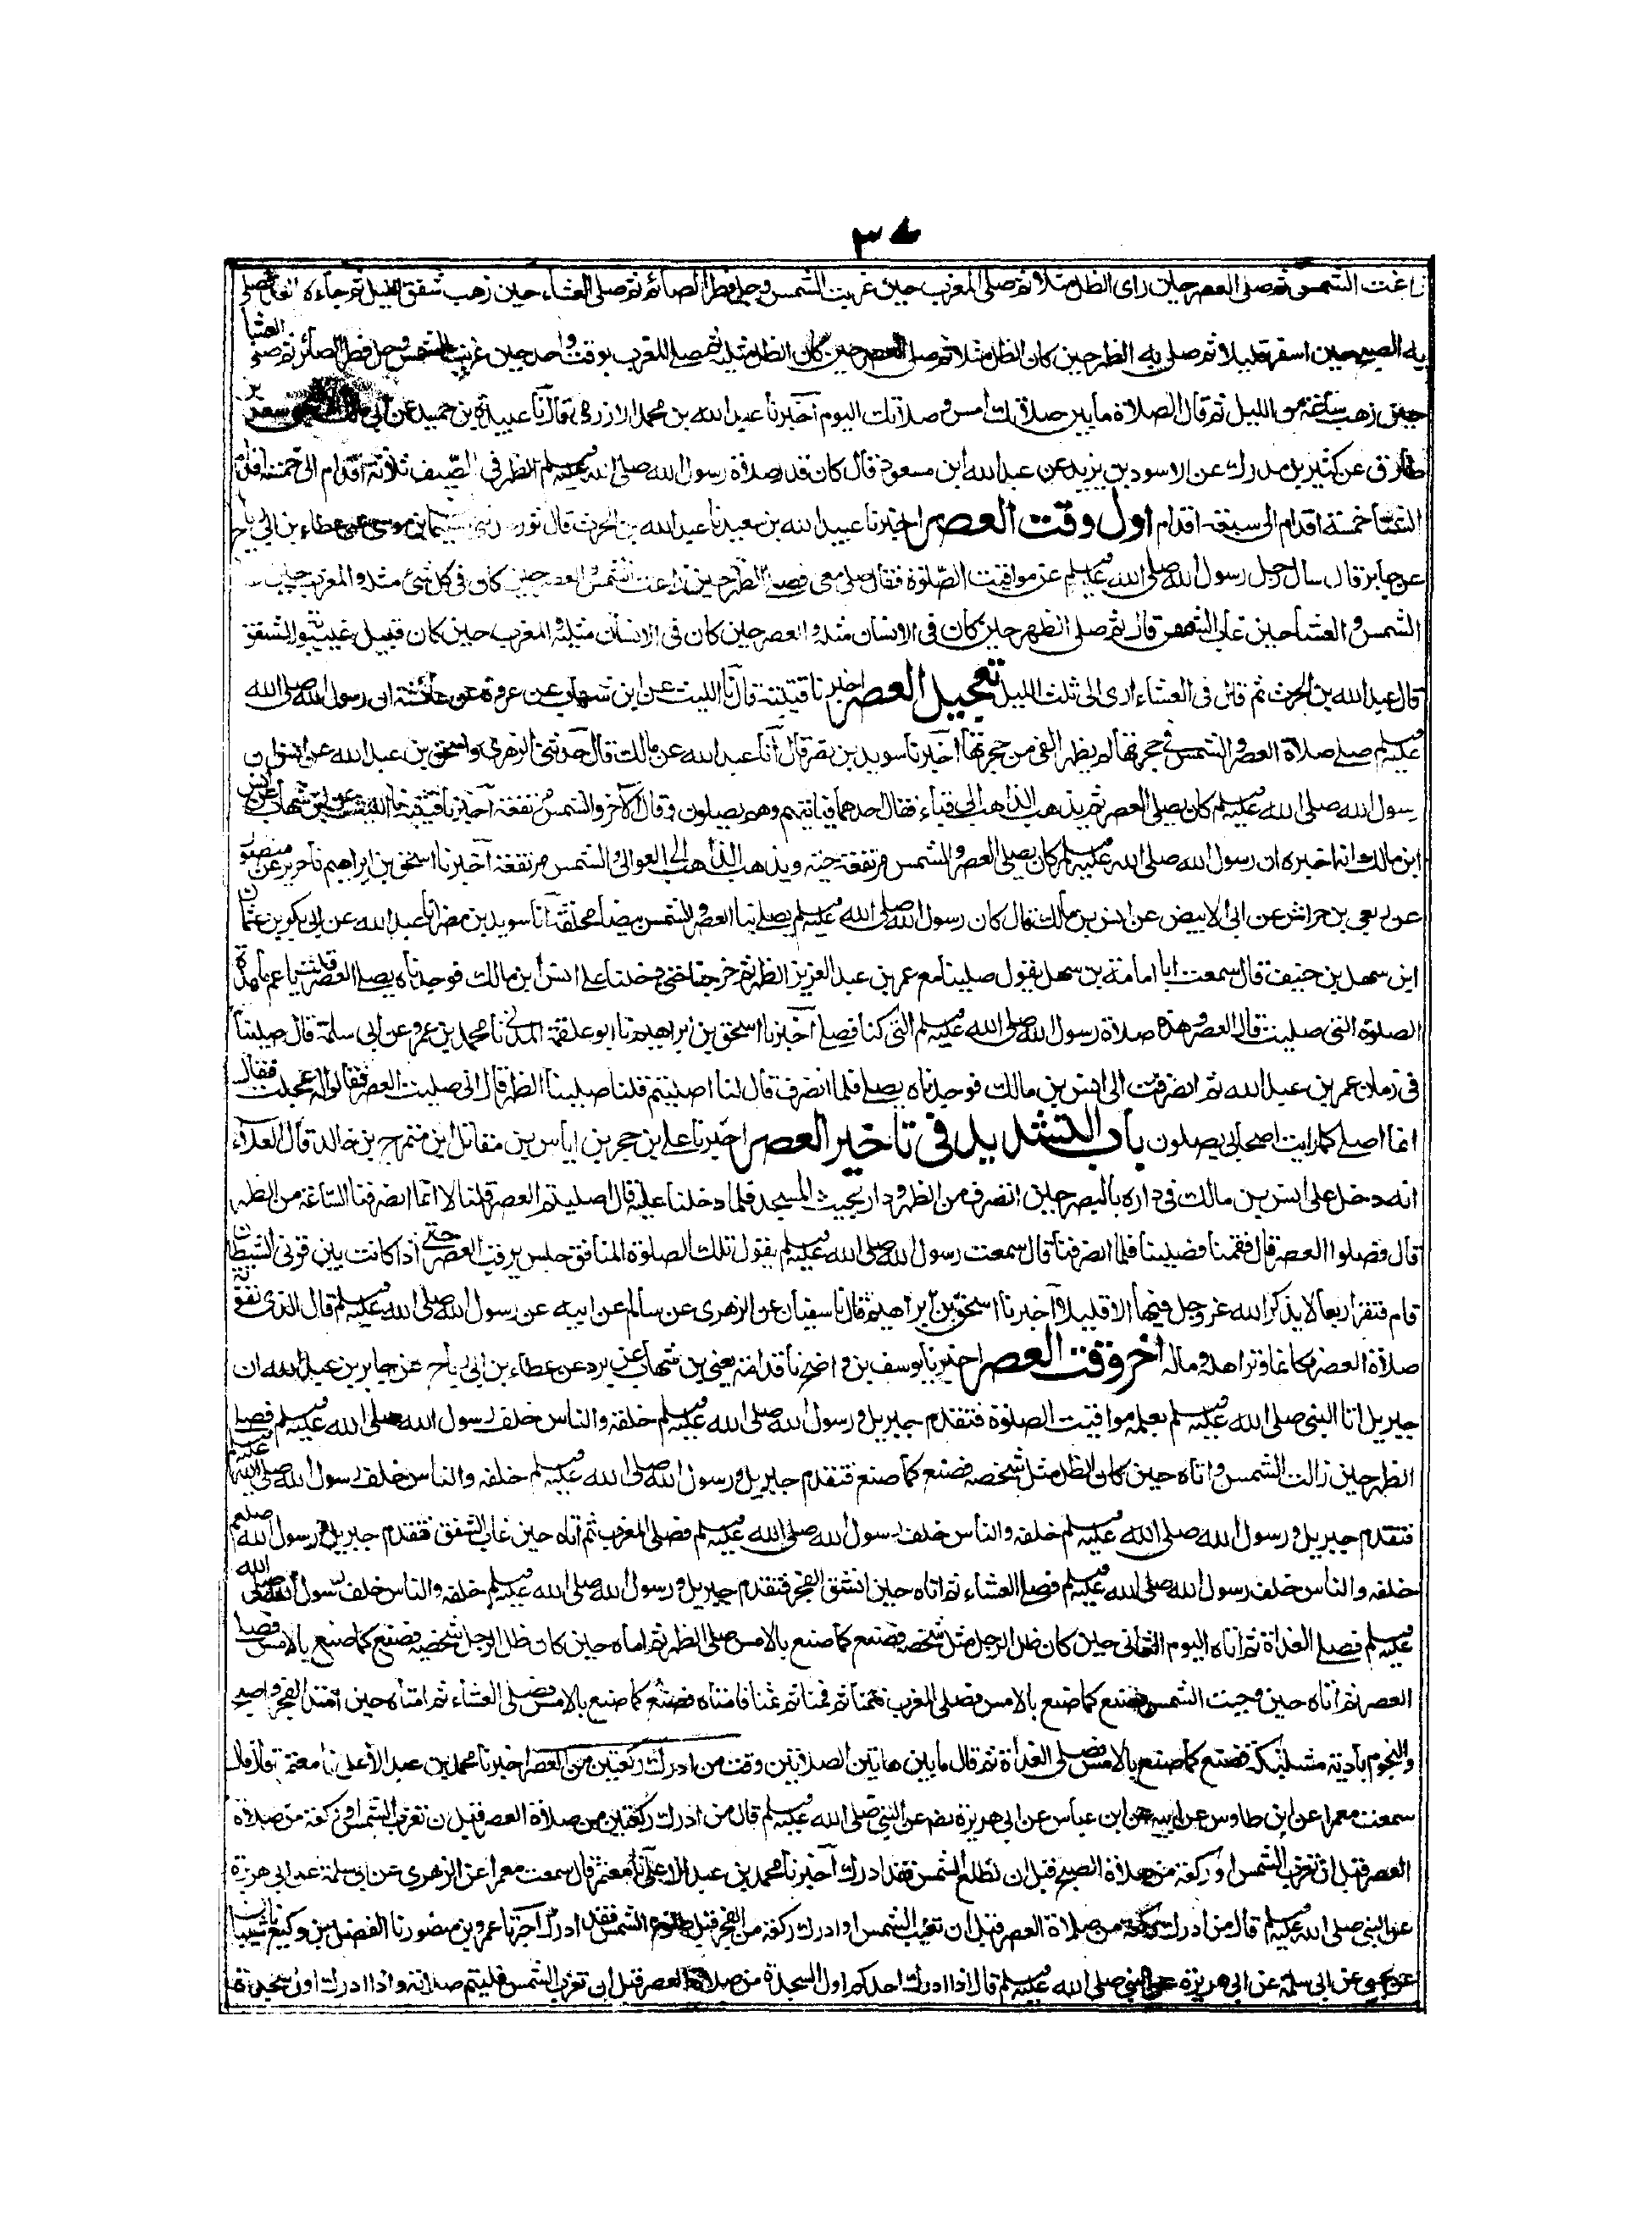 زاغت الشمس ثم صلى العصر حين راى الظل مثله ثم صلى المغرب حين غربت الشمس وحل فطر الصائم ثم صلى العشاء حين ذهب شفق الليل ثم جاءه الغد فصلى
به الصبح حين اسفر قليلا ثم صلى به الظهر حين كان الظل مثله ثم صلى العصر حين كان الظل مثليه ثم صلى المغرب بوقت واحد حين غربت الشمس وحل فطر الصائم ثم صلى العشا
حين ذهب ساعة من الليل ثم قال الصلاة ما بين صلاتك امس وصلاتك اليوم اخبرنا عبد الله بن محمد الاذرمى قال نا عبيدة بن حميد عن ابى مالك سعد بن
طارق عن كثير بن مدرك عن الاسود بن يزيد عن عبد الله ابن مسعود قال كان قدر صلاة رسول الله صلى الله عليه وسلم الظهر فى الصيف ثلاثة اقدام الى خمسة اقدام
الشتا خمسة اقدام الى سبعة اقدام اول وقت العصر اخبرنا عبيد الله بن سعيد نا عبد الله بن الحرث قال ثور سليمان بن موسى عن عطاء بن ابى رباح
عن جابر قال سال رجل رسول الله صلى الله عليه وسلم عن مواقيت الصلوة فقال صل معى فصلى الظهر حين زاغت الشمس والعصر حين كان فئ كل شئ مثله والمغرب حين غابت
الشمس والعشاء حين غاب الشفق قال ثم صلى الظهر حين كان فئ الانسان مثله والعصر حين كان فئ الانسان مثليه والمغرب حين كان قبيل غيبوبة الشفق
قال عبد الله بن الحرث ثم قال فى العشاء ارى الى ثلث الليل تعجيل العصر اخبرنا قتيبة قال نا الليث عن ابن شهاب عن عروة عن عائشة ان رسول الله صلى الله
عليه وسلم صلى صلاة العصر والشمس فى حجرتها لم يظهر الفئ من حجرتها اخبرنا سويد بن نصر قال انا عبد الله عن مالك قال حدثنى الزهرى واسحق بن عبد الله عن انس ان
رسول الله صلى الله عليه وسلم كان يصلى العصر ثم يذهب الذاهب الى قباء فقال احدهما فياتيهم وهم يصلون وقال الآخر والشمس مرتفعة اخبرنا قتيبة نا الليث عن ابن شهاب عن انس
ابن مالك انه اخبره ان رسول الله صلى الله عليه وسلم كان يصلى العصر والشمس مرتفعة حية ويذهب الذاهب الى العوالى والشمس مرتفعة اخبرنا اسحق بن ابراهيم نا جرير عن منصور
عن ربعى بن حراش عن ابى الابيض عن انس بن مالك قال كان رسول الله صلى الله عليه وسلم يصلى بنا العصر والشمس بيضاء محلقة انا سويد بن نصر انا عبد الله عن ابى بكر بن عثمان
ابن سهل بن حنيف قال سمعت ابا امامة بن سهل يقول صلينا مع عمر بن عبد العزيز الظهر ثم خرجنا حتى دخلنا على انس ابن مالك فوجدناه يصلى العصر قلت يا عم ما هذه
الصلوة التى صليت قال العصر وهذه صلاة رسول الله صلى الله عليه وسلم التى كنا نصلى اخبرنا اسحق بن ابراهيم نا ابو علقمة المدنى نا محمد بن عمرو عن ابى سلمة قال صلينا
فى زمان عمر بن عبد الله ثم انصرفت الى انس بن مالك فوجدناه يصلى فلما انصرف قال لنا اصليتم قلنا صلينا الظهر قال انى صليت العصر فقالوا له عجلت فقال
انما اصلى كما رايت اصحابى يصلون باب التشديد فى تاخير العصر اخبرنا على بن حجر بن اياس بن مقاتل ابن مشمرج بن خالد قال العلاء
انه دخل على انس بن مالك فى داره بالبصرة حين انصرف من الظهر وداره بجنب المسجد فلما دخلنا عليه قال اصليتم العصر قلنا لا انما انصرفنا الساعة من الظهر
قال فصلوا العصر قال فقمنا فصلينا فلما انصرفنا قال سمعت رسول الله صلى الله عليه وسلم يقول تلك الصلوة المنافق جلس يرقب العصر حتى اذا كانت بين قرنى الشيطان
قام فنقر اربعا لا يذكر الله عز وجل فيها الا قليلا اخبرنا اسحق بن ابراهيم قال نا سفيان عن الزهرى عن سالم عن ابيه عن رسول الله صلى الله عليه وسلم قال الذى تفوته
صلاة العصر فكانما وتر اهله وماله اخر وقت العصر اخبرنا يوسف بن واضح نا قدامة يعنى بن شهاب عن برد عن عطاء بن ابى رباح عن جابر بن عبد الله ان
جبريل اتا النبى صلى الله عليه وسلم يعلمه مواقيت الصلوة فتقدم جبريل ورسول الله صلى الله عليه وسلم خلفه والناس خلف رسول الله صلى الله عليه وسلم فصلى
الظهر حين زالت الشمس واتاه حين كان الظل مثل شخصه فصنع كما صنع فتقدم جبريل ورسول الله صلى الله عليه وسلم خلفه والناس خلف رسول الله صلى الله عليه وسلم
فتقدم جبريل ورسول الله صلى الله عليه وسلم خلفه والناس خلف رسول الله صلى الله عليه وسلم فصلى المغرب ثم اتاه حين غاب الشفق فتقدم جبريل ورسول الله صلعم
خلفه والناس خلف رسول الله صلى الله عليه وسلم فصلى العشاء ثم اتاه حين انشق الفجر فتقدم جبريل ورسول الله صلى الله عليه وسلم خلفه والناس خلف رسول الله صلى الله
عليه وسلم فصلى الغداة ثم اتاه اليوم الثانى حين كان ظل الرجل مثل شخصه فصنع كما صنع بالامس صلى الظهر ثم اتاه حين كان ظل الرجل شخصيه فصنع كما صنع بالامس فصلى
العصر ثم اتاه حين وجبت الشمس فصنع كما صنع بالامس فصلى المغرب فنمنا ثم قمنا ثم نمنا فاتاه فصنع كما صنع بالامس فصلى العشاء ثم اتاه حين امتد الفجر واصبح
والنجوم بادية مشتبكة فصنع كما صنع بالامس فصلى الغداة ثم قال ما بين هاتين الصلاتين وقت من ادرك ركعتين من العصر اخبرنا محمد بن عبد الأعلى نا معتمر قال
سمعت معمرا عن ابن طاوس عن ابيه عن ابن عباس عن ابى هريرة عن النبى صلى الله عليه وسلم قال من ادرك ركعتين من صلاة العصر قبل ان تغرب الشمس او ركعة من صلاة
العصر قبل ان تغرب الشمس او ركعة من صلاة الصبح قبل ان تطلع الشمس فقد ادرك اخبرنا محمد بن عبد الاعلى نا معتمر قال سمعت معمرا عن الزهرى عن ابى سلمة عن ابى هريرة
عن النبى صلى الله عليه وسلم قال من ادرك ركعة من صلاة العصر قبل ان تغيب الشمس او ادرك ركعة من الفجر قبل طلوع الشمس فقد ادرك اخبرنا عمرو بن منصور نا الفضل بن دكين نا شيبان
عن يحيى عن ابى سلمة عن ابى هريرة عن النبى صلى الله عليه وسلم قال اذا ادرك احدكم اول السجدة من صلاة العصر قبل ان تغرب الشمس فليتم صلاته واذا ادرك اول سجدة